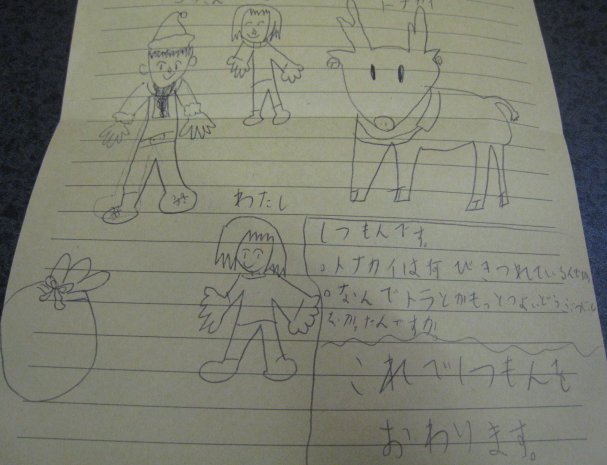 トナカイ
わたし
しつもんです。
。トナカイは何びきつれているんですか
。なんでトラとかもっとつよいどうぶつに
しなかったんですか
これでしつもんを
おわります。